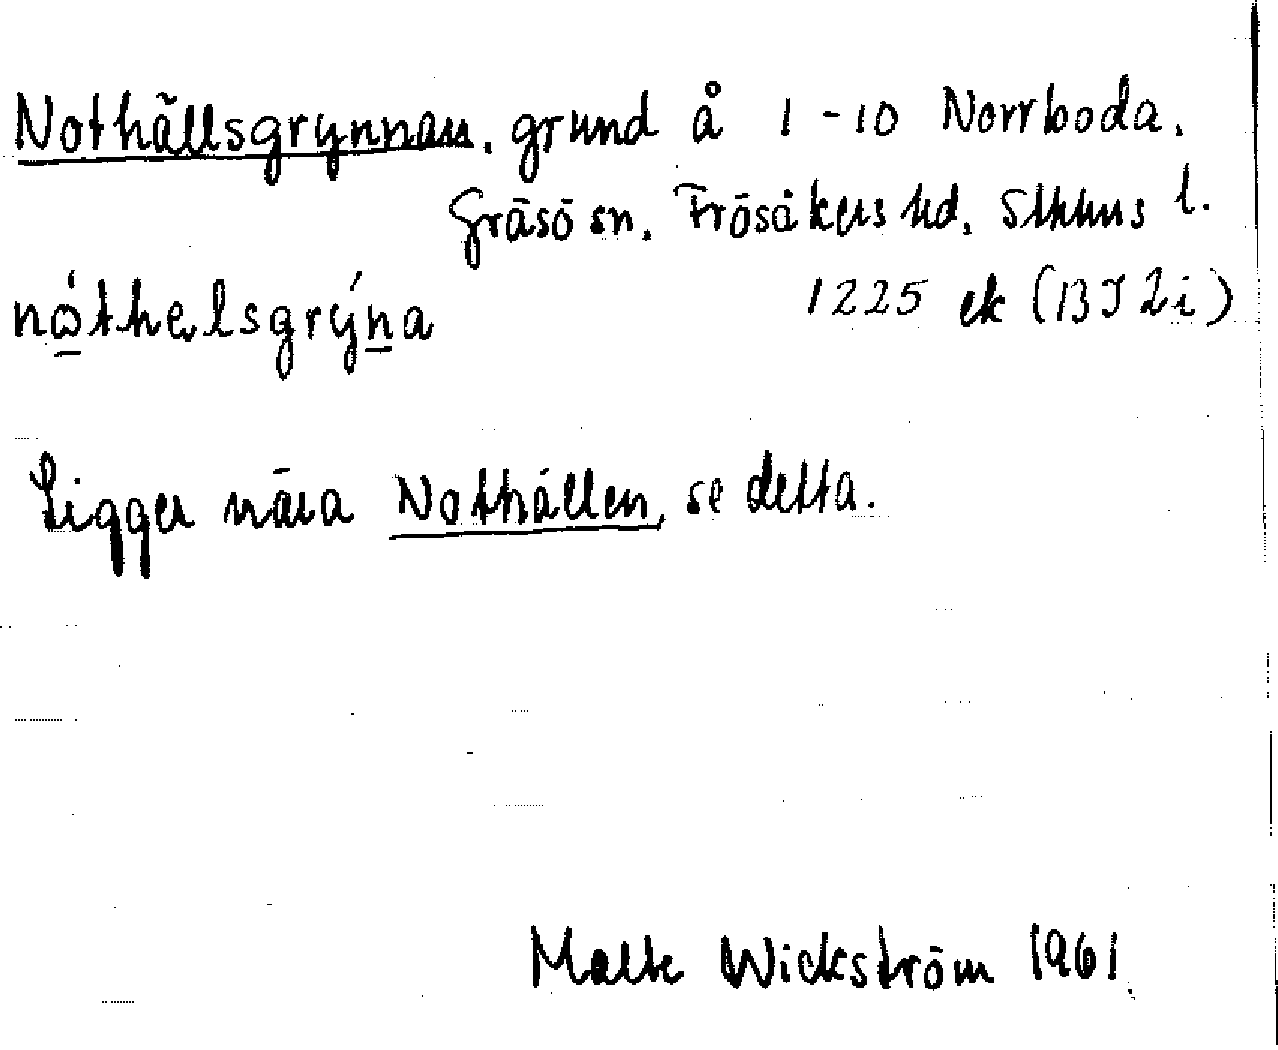 Nothällsgrynnan, grund å 1-10 Norrboda,
Gräsö sn, Frösåkers hd, Sthlms l.
nóthelsgrýna
1225 ek (13I 2i)
Ligger nära Nothällen, se detta.
Malte Wickström 1961.